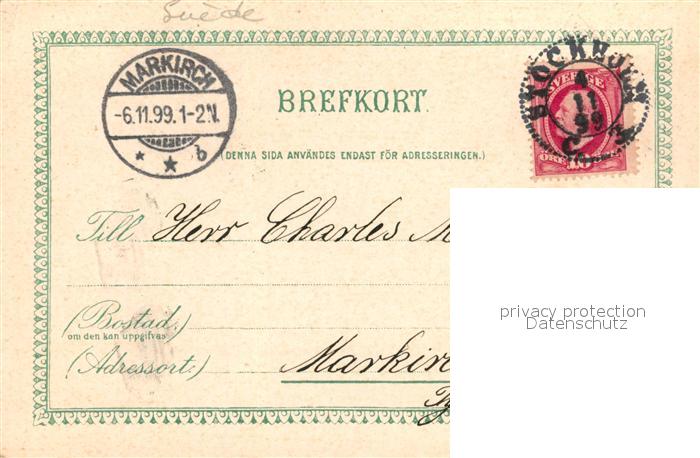 Suède
MARKIRCH
-6.11.99.1-2N.
* * b
BREFKORT.
(DENNA SIDA ANVÄNDES ENDAST FÖR ADRESSERINGEN.)
STOCKHOLM
4
11
99
C
SVERIGE
ÖRE
Till Herr Charles M
(Bostad.)
om den kan uppgifvas
(Adressort.) Markirc
privacy protection
Datenschutz